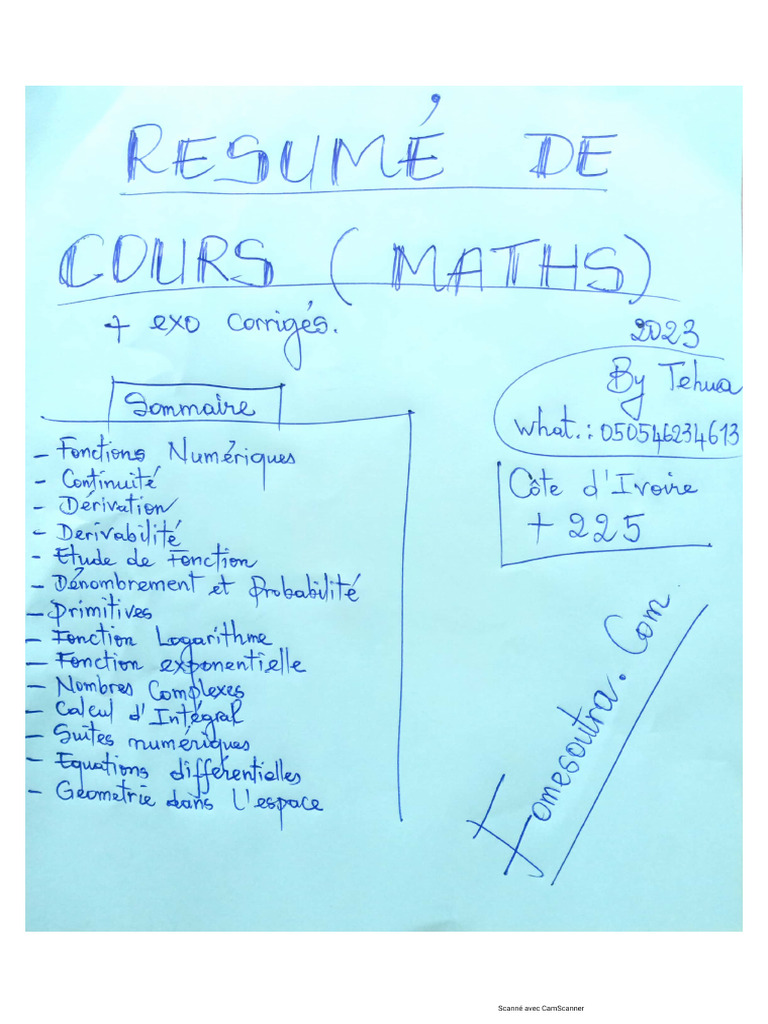 RESUMÉ DE
COURS (MATHS)
+ exo corrigés.
2023
By Tehua
what.: 050546234613
Côte d'Ivoire
+225
Sommaire
- Fonctions Numériques
- Continuité
- Dérivation
- Derivabilité
- Etude de Fonction
- Dénombrement et Probabilité
- Primitives
- Fonction Logarithme
- Fonction exponentielle
- Nombres Complexes
- Calcul d'Intégral
- Suites numériques
- Equations différentielles
- Géometrie dans l'espace
Fomesoutra.Com
Scanné avec CamScanner